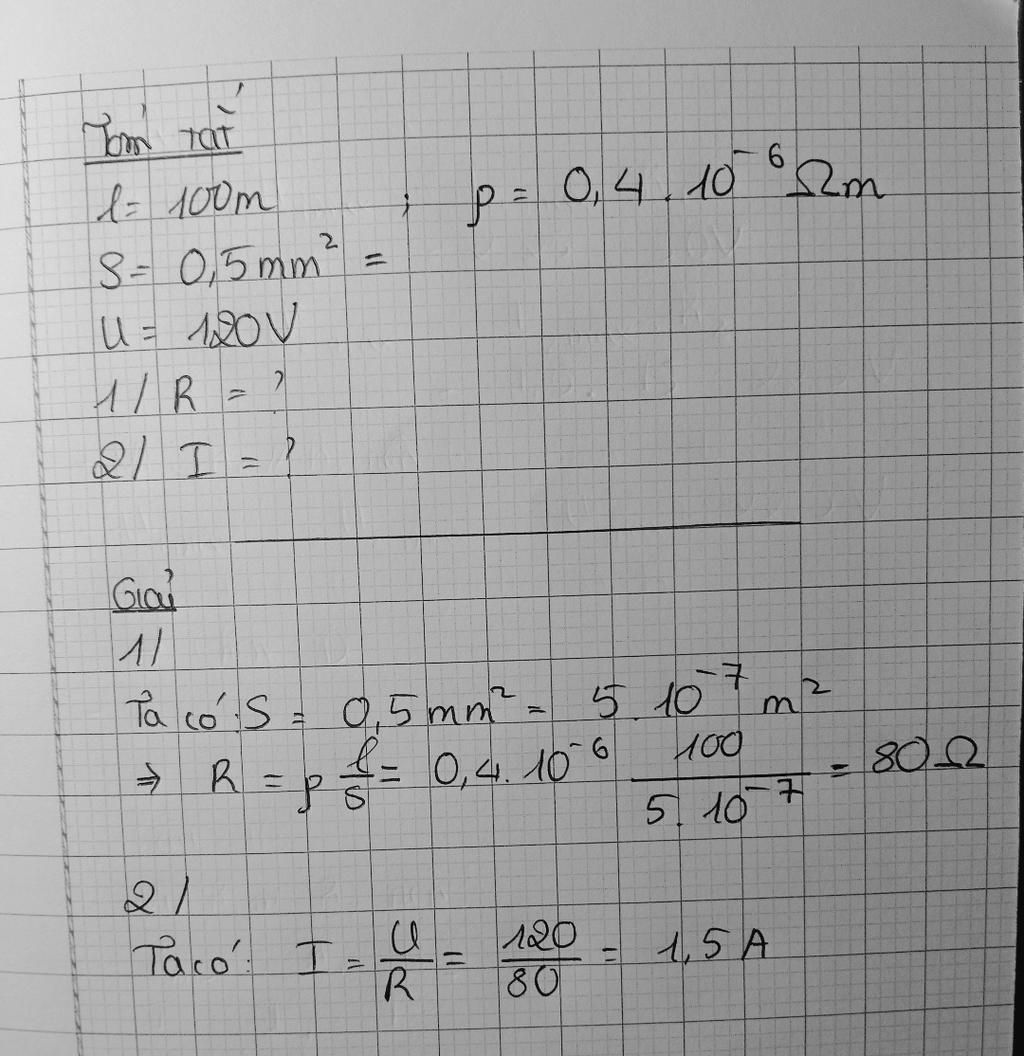 Tóm tắt
l = 100m ; ρ = 0,4 . 10⁻⁶ Ωm
S = 0,5mm² =
U = 120V
1/ R = ?
2/ I = ?
Giải
1/
Ta có: S = 0,5mm² = 5.10⁻⁷ m²
⇒ R = ρ l/S = 0,4.10⁻⁶ 100/5.10⁻⁷ = 80Ω
2/
Ta có: I = U/R = 120/80 = 1,5A